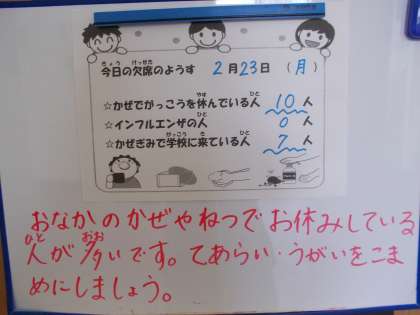 今日の欠席のようす 2月23日 (月)
☆かぜでがっこうを休んでいる人 10人
☆インフルエンザの人 0人
☆かぜぎみで学校に来ている人 7人
おなかのかぜやねつでお休みしている
人が多いです。てあらい・うがいをこま
めにしましょう。